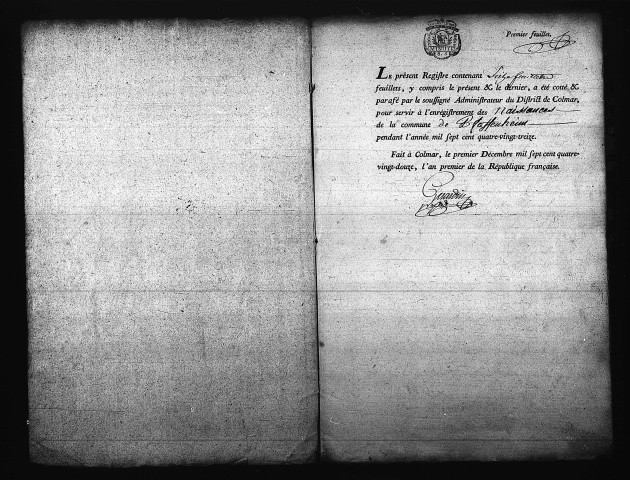 Premier feuillet.
LE présent Registre contenant
feuillets, y compris le présent & le dernier, a été cotté &
parafé par le soussigné Administrateur du District de Colmar,
pour servir à l'enrégistrement des Naissances
de la commune de Pfaffenheim
pendant l'année mil sept cent quatre-vingt-treize.
Fait à Colmar, le premier Décembre mil sept cent quatre-
vingt-douze, l'an premier de la République française.